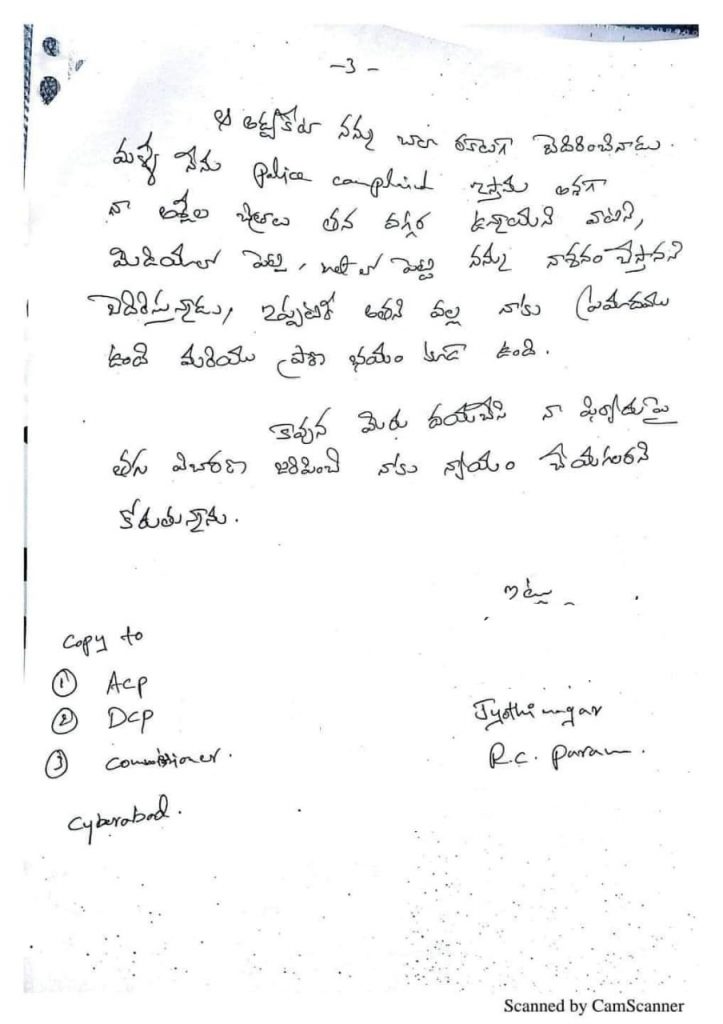 -3-
నన్ను చాలా బెదిరించినాడు.
మళ్ళీ నేను Police complaint ఇస్తాను అనగా
నా అశ్లీల చిత్రాలు తన దగ్గర ఉన్నాయని వాటిని,
మీడియాలో పెట్టి, net లో పెట్టి నన్ను నాశనం చేస్తానని
బెదిరిస్తున్నాడు, ఇప్పటికీ అతని వల్ల నాకు ప్రమాదము
ఉంది మరియు ప్రాణ భయం కూడా ఉంది.
కావున మీరు దయచేసి నా ఫిర్యాదుపై
తగు విచారణ జరిపించి నాకు న్యాయం చేయగలరని
కోరుతున్నాను.
ఇట్లు
Copy to
① ACP
② DCP
Jyothi nagar
③ Commissioner.
R.C. Puram.
Cyberabad.
Scanned by CamScanner